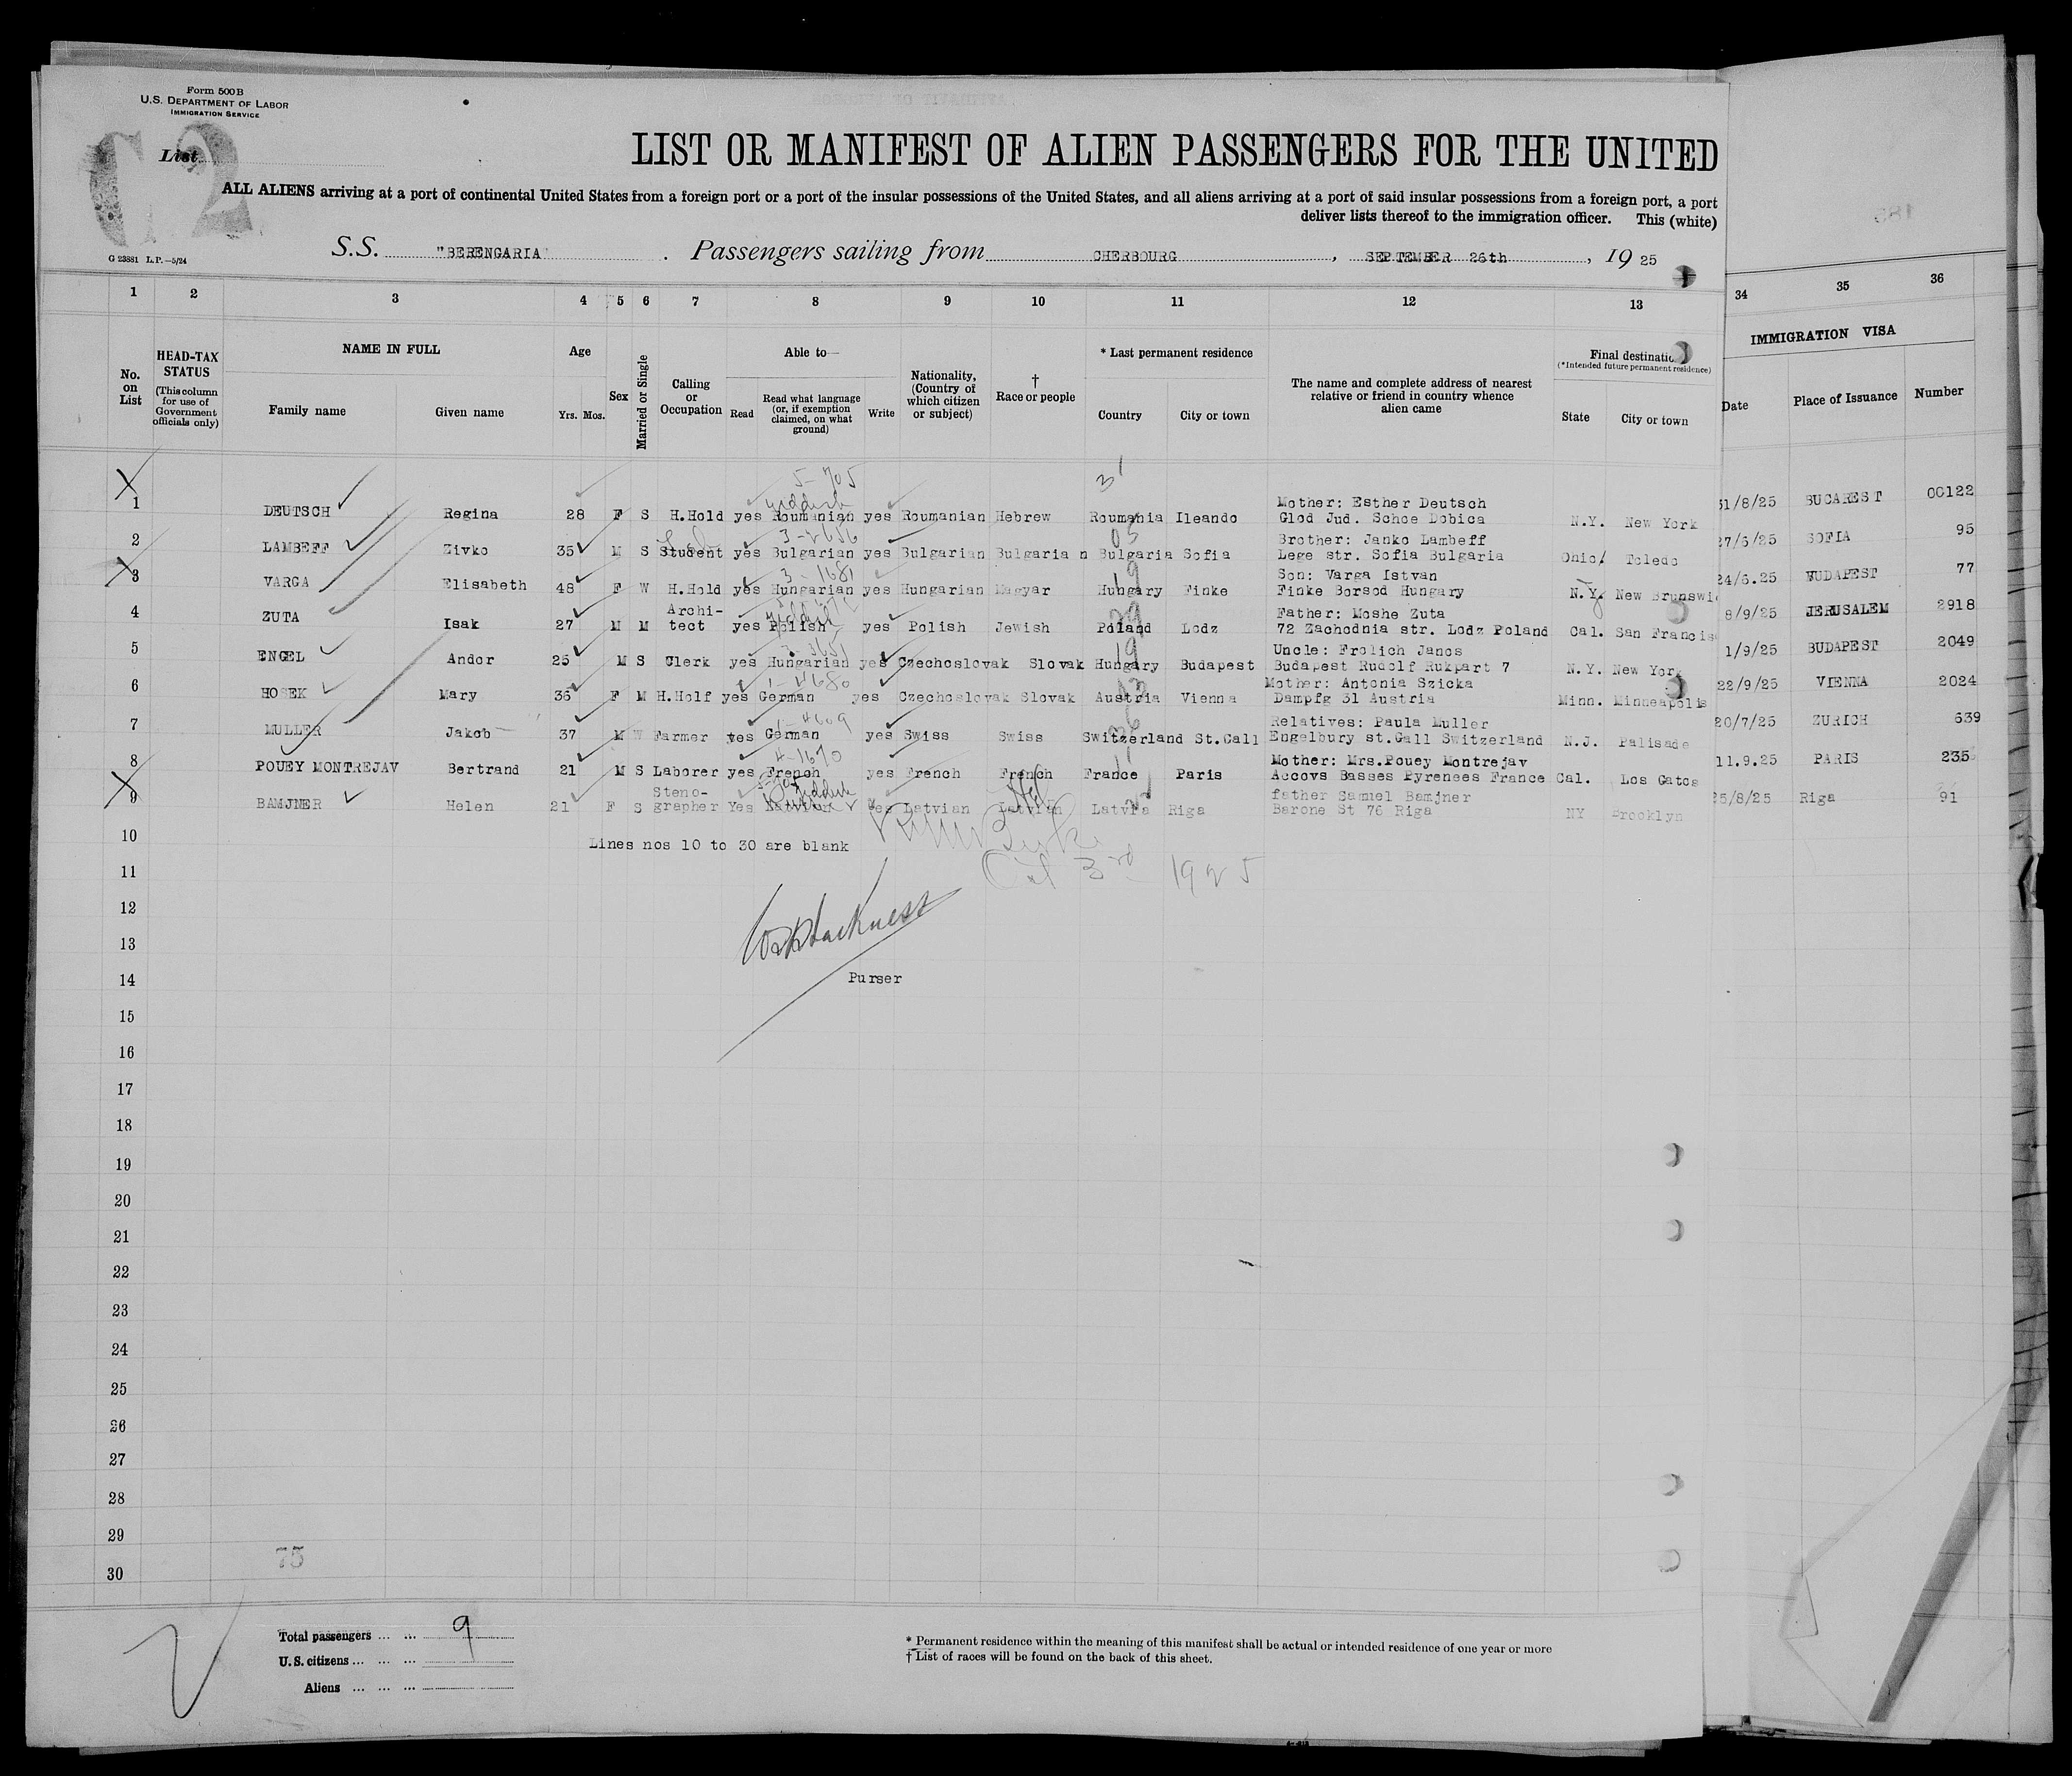 Form 500B
U.S. DEPARTMENT OF LABOR
IMMIGRATION SERVICE
List
LIST OR MANIFEST OF ALIEN PASSENGERS FOR THE UNITED
ALL ALIENS arriving at a port of continental United States from a foreign port or a port of the insular possessions of the United States, and all aliens arriving at a port of said insular possessions from a foreign port, a port
deliver lists thereof to the immigration officer. This (white)
S.S. "BERENGARIA" . Passengers sailing from CHERBOURG , SEPTEMBER 26th , 19 25
G 23881 L.P.—5/24
1 2 3 4 5 6 7 8 9 10 11 12 13 34 35 36
No. on List
HEAD-TAX STATUS (This column for use of Government officials only)
NAME IN FULL
Family name Given name
Age
Yrs. Mos.
Sex
Married or Single
Calling or Occupation
Able to—
Read Read what language (or, if exemption claimed, on what ground) Write
Nationality, (Country of which citizen or subject)
† Race or people
* Last permanent residence
Country City or town
The name and complete address of nearest relative or friend in country whence alien came
Final destination
(*Intended future permanent residence)
State City or town
IMMIGRATION VISA
Date Place of Issuance Number
5-705
Yiddish Mother: Esther Deutsch
1 DEUTSCH Regina 28 F S H.Hold yes Roumanian yes Roumanian Hebrew Roumania Ileando Glod Jud. Schoe Dobica N.Y. New York 31/8/25 BUCAREST 00122
3-2656 05 Brother: Janko Lambeff
2 LAMBEFF Zivko 35 M S Student yes Bulgarian yes Bulgarian Bulgaria n Bulgaria Sofia Lege str. Sofia Bulgaria Ohio/ Toledo 27/5/25 SOFIA 95
3-1681 19 Son: Varga Istvan
3 VARGA Elisabeth 48 F W H.Hold yes Hungarian yes Hungarian Magyar Hungary Finke Finke Borsod Hungary N.Y. New Brunswi 24/6.25 BUDAPEST 77
Archi- Yiddish Father: Moshe Zuta
4 ZUTA Isak 27 M M tect yes Polish yes Polish Jewish Poland Lodz 72 Zachodnia str. Lodz Poland Cal. San Francis 8/9/25 JERUSALEM 2918
19 Uncle: Frolich Janos
5 ENGEL Andor 25 M S Clerk yes Hungarian yes Czechoslovak Slovak Hungary Budapest Budapest Rudolf Rukpart 7 N.Y. New York 1/9/25 BUDAPEST 2049
1-4680 Mother: Antonia Szicka
6 HOSEK Mary 36 F M H.Holf yes German yes Czechoslovak Slovak Austria Vienna Dampfg 31 Austria Minn. Minneapolis 22/9/25 VIENNA 2024
Relatives: Paula Muller
7 MULLER Jakob 37 M W Farmer yes German yes Swiss Swiss Switzerland St.Gall Engelbury st.Gall Switzerland N.J. Palisade 20/7/25 ZURICH 639
4-1670 11 Mother: Mrs.Pouey Montrejav
8 POUEY MONTREJAV Bertrand 21 M S Laborer yes French yes French French France Paris Accovs Basses Pyrenees France Cal. Los Gatos 11.9.25 PARIS 235
Steno- Yiddish father Samuel Bamjner
9 BAMJNER Helen 21 F S grapher Yes Latvian Yes Latvian Latvian Latvia Riga Barone St 76 Riga NY Brooklyn 25/8/25 Riga 91
10 Lines nos 10 to 30 are blank
11 Oct 3rd 1925
12
13
14 Purser
15
16
17
18
19
20
21
22
23
24
25
26
27
28
29
75
30
Total passengers 9
U.S. citizens
Aliens
* Permanent residence within the meaning of this manifest shall be actual or intended residence of one year or more
† List of races will be found on the back of this sheet.